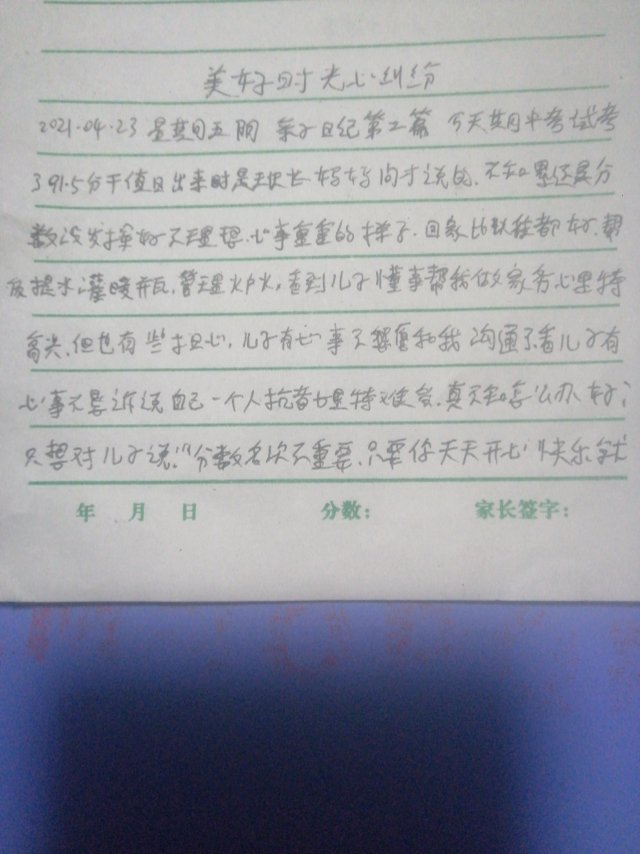 美好时光心纠纷
2021.04.23 星期五 阴 亲子日记第二篇 今天期中考试考
391.5分干值日出来时是天快长 好好问才说的、不知累还是分
数没发挥好不理想.心事重重的样子.回家比以往都好.帮
提水灌暖瓶,管理火炉火,看到儿子懂事帮我做家务心里特
高兴、但也有些担心,儿子有心事不想和我沟通了看儿子有
心事不愿诉说自己一个人抗着心里特难受,真不知怎么办好;
只想对儿子说:"分数名次不重要.只要你天天开心快乐就
年 月 日 分数: 家长签字: